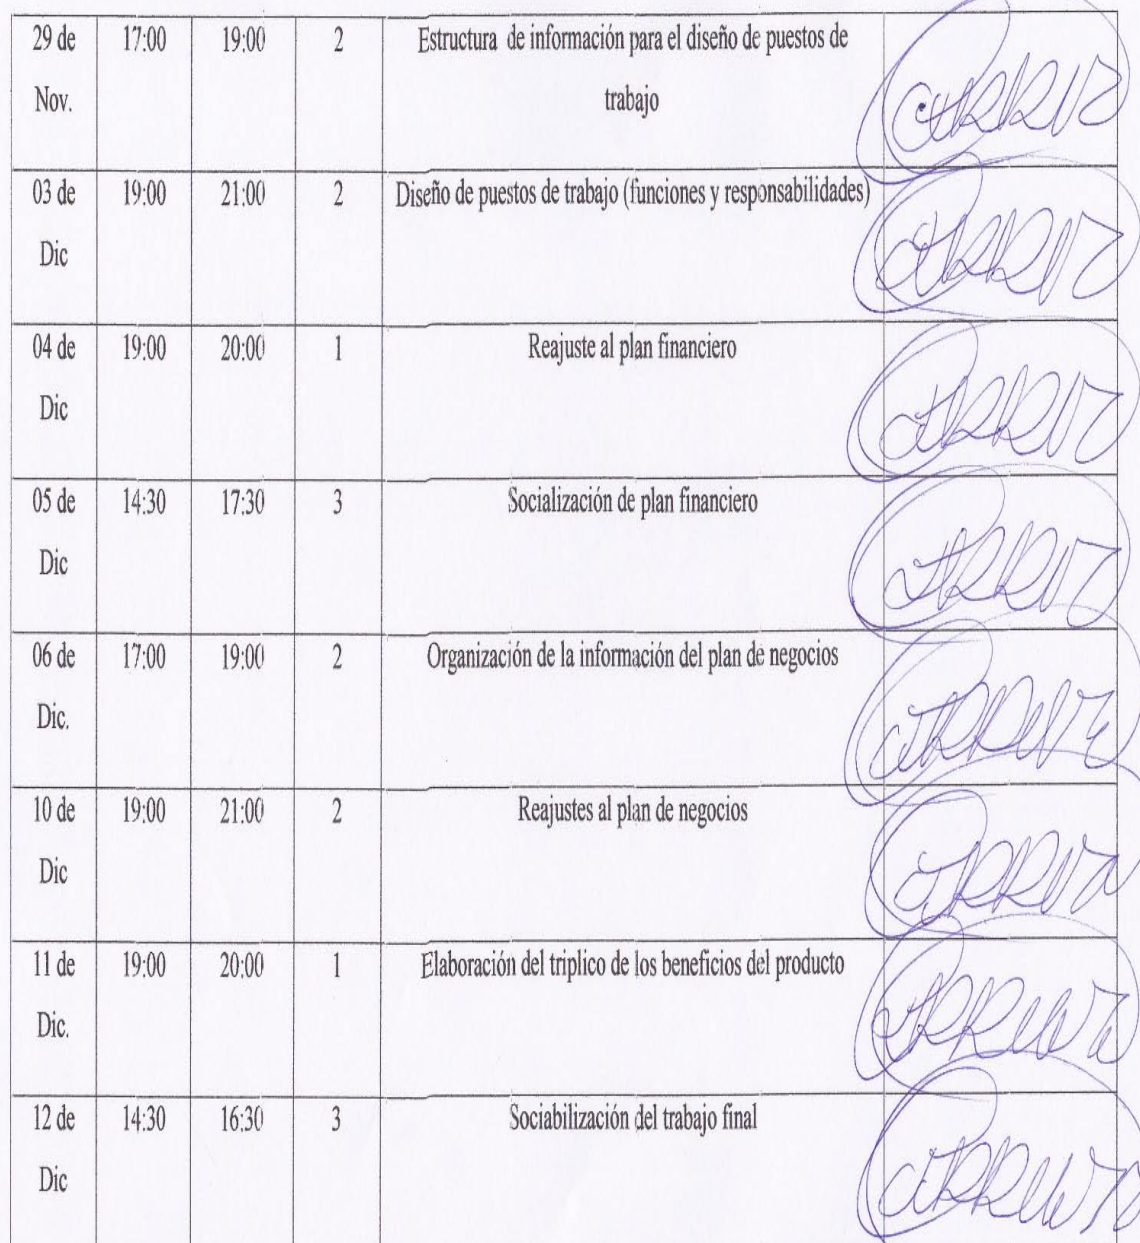 29 de 17:00 19:00 2 Estructura de información para el diseño de puestos de
Nov. trabajo
03 de 19:00 21:00 2 Diseño de puestos de trabajo (funciones y responsabilidades)
Dic
04 de 19:00 20:00 1 Reajuste al plan financiero
Dic
05 de 14:30 17:30 3 Socialización de plan financiero
Dic
06 de 17:00 19:00 2 Organización de la información del plan de negocios
Dic.
10 de 19:00 21:00 2 Reajustes al plan de negocios
Dic
11 de 19:00 20:00 1 Elaboración del triplico de los beneficios del producto
Dic.
12 de 14:30 16:30 3 Sociabilización del trabajo final
Dic